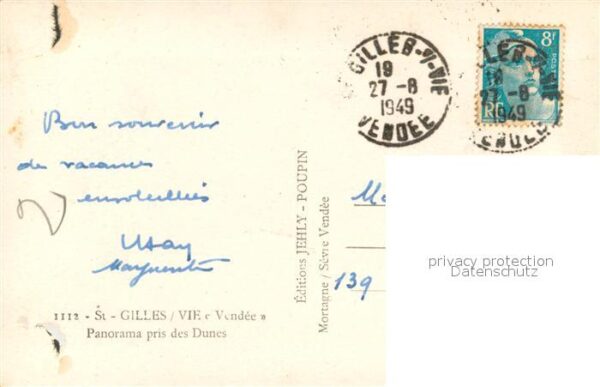 Bon souvenir
de vacances
ensoleillées
Marguerite
1112 - St - GILLES / VIE « Vendée »
Panorama pris des Dunes
Éditions JEHLY - POUPIN
Mortagne / Sèvre Vendée
GILLES-S/-VIE
19
27-8
1949
VENDEE
8f
POSTES
RF
GILLES-S/-VIE
19
27-8
1949
VENDEE
139
privacy protection
Datenschutz